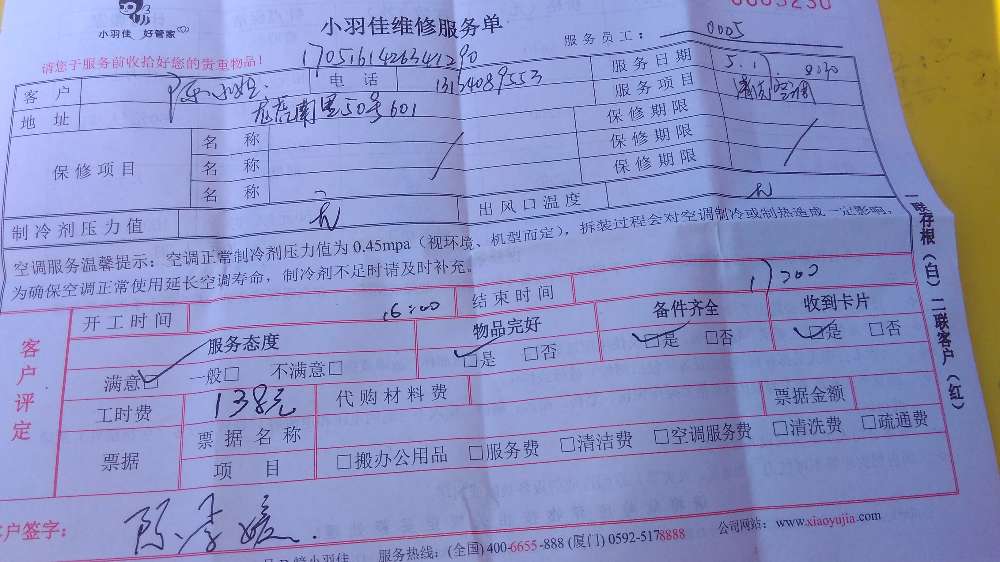 小羽佳 好管家
小羽佳维修服务单
0003230
服务员工: 0005
请您于服务前收拾好您的贵重物品!
1705161426341290
客户 陈小姐 电话 13164089553 服务日期 5.17
地址 龙虎南里50号601 服务项目 清洗空调
保修项目 名称 保修期限
名称 保修期限
名称 保修期限
制冷剂压力值 出风口温度
空调服务温馨提示:空调正常制冷剂压力值为0.45mpa(视环境、机型而定),拆装过程会对空调制冷或制热造成一定影响,
为确保空调正常使用延长空调寿命,制冷剂不足时请及时补充。
客户评定
开工时间 16:00 结束时间 17:00
服务态度 物品完好 备件齐全 收到卡片
满意□ 一般□ 不满意□ □是 □否 □是 □否 □是 □否
工时费 138元 代购材料费 票据金额
票据 票据名称
项目 □搬办公用品 □服务费 □清洁费 □空调服务费 □清洗费 □疏通费
客户签字:
小羽佳 服务热线:(全国)400-6655-888 (厦门)0592-5178888 公司网站:www.xiaoyujia.com
一联存根(白)二联客户(红)